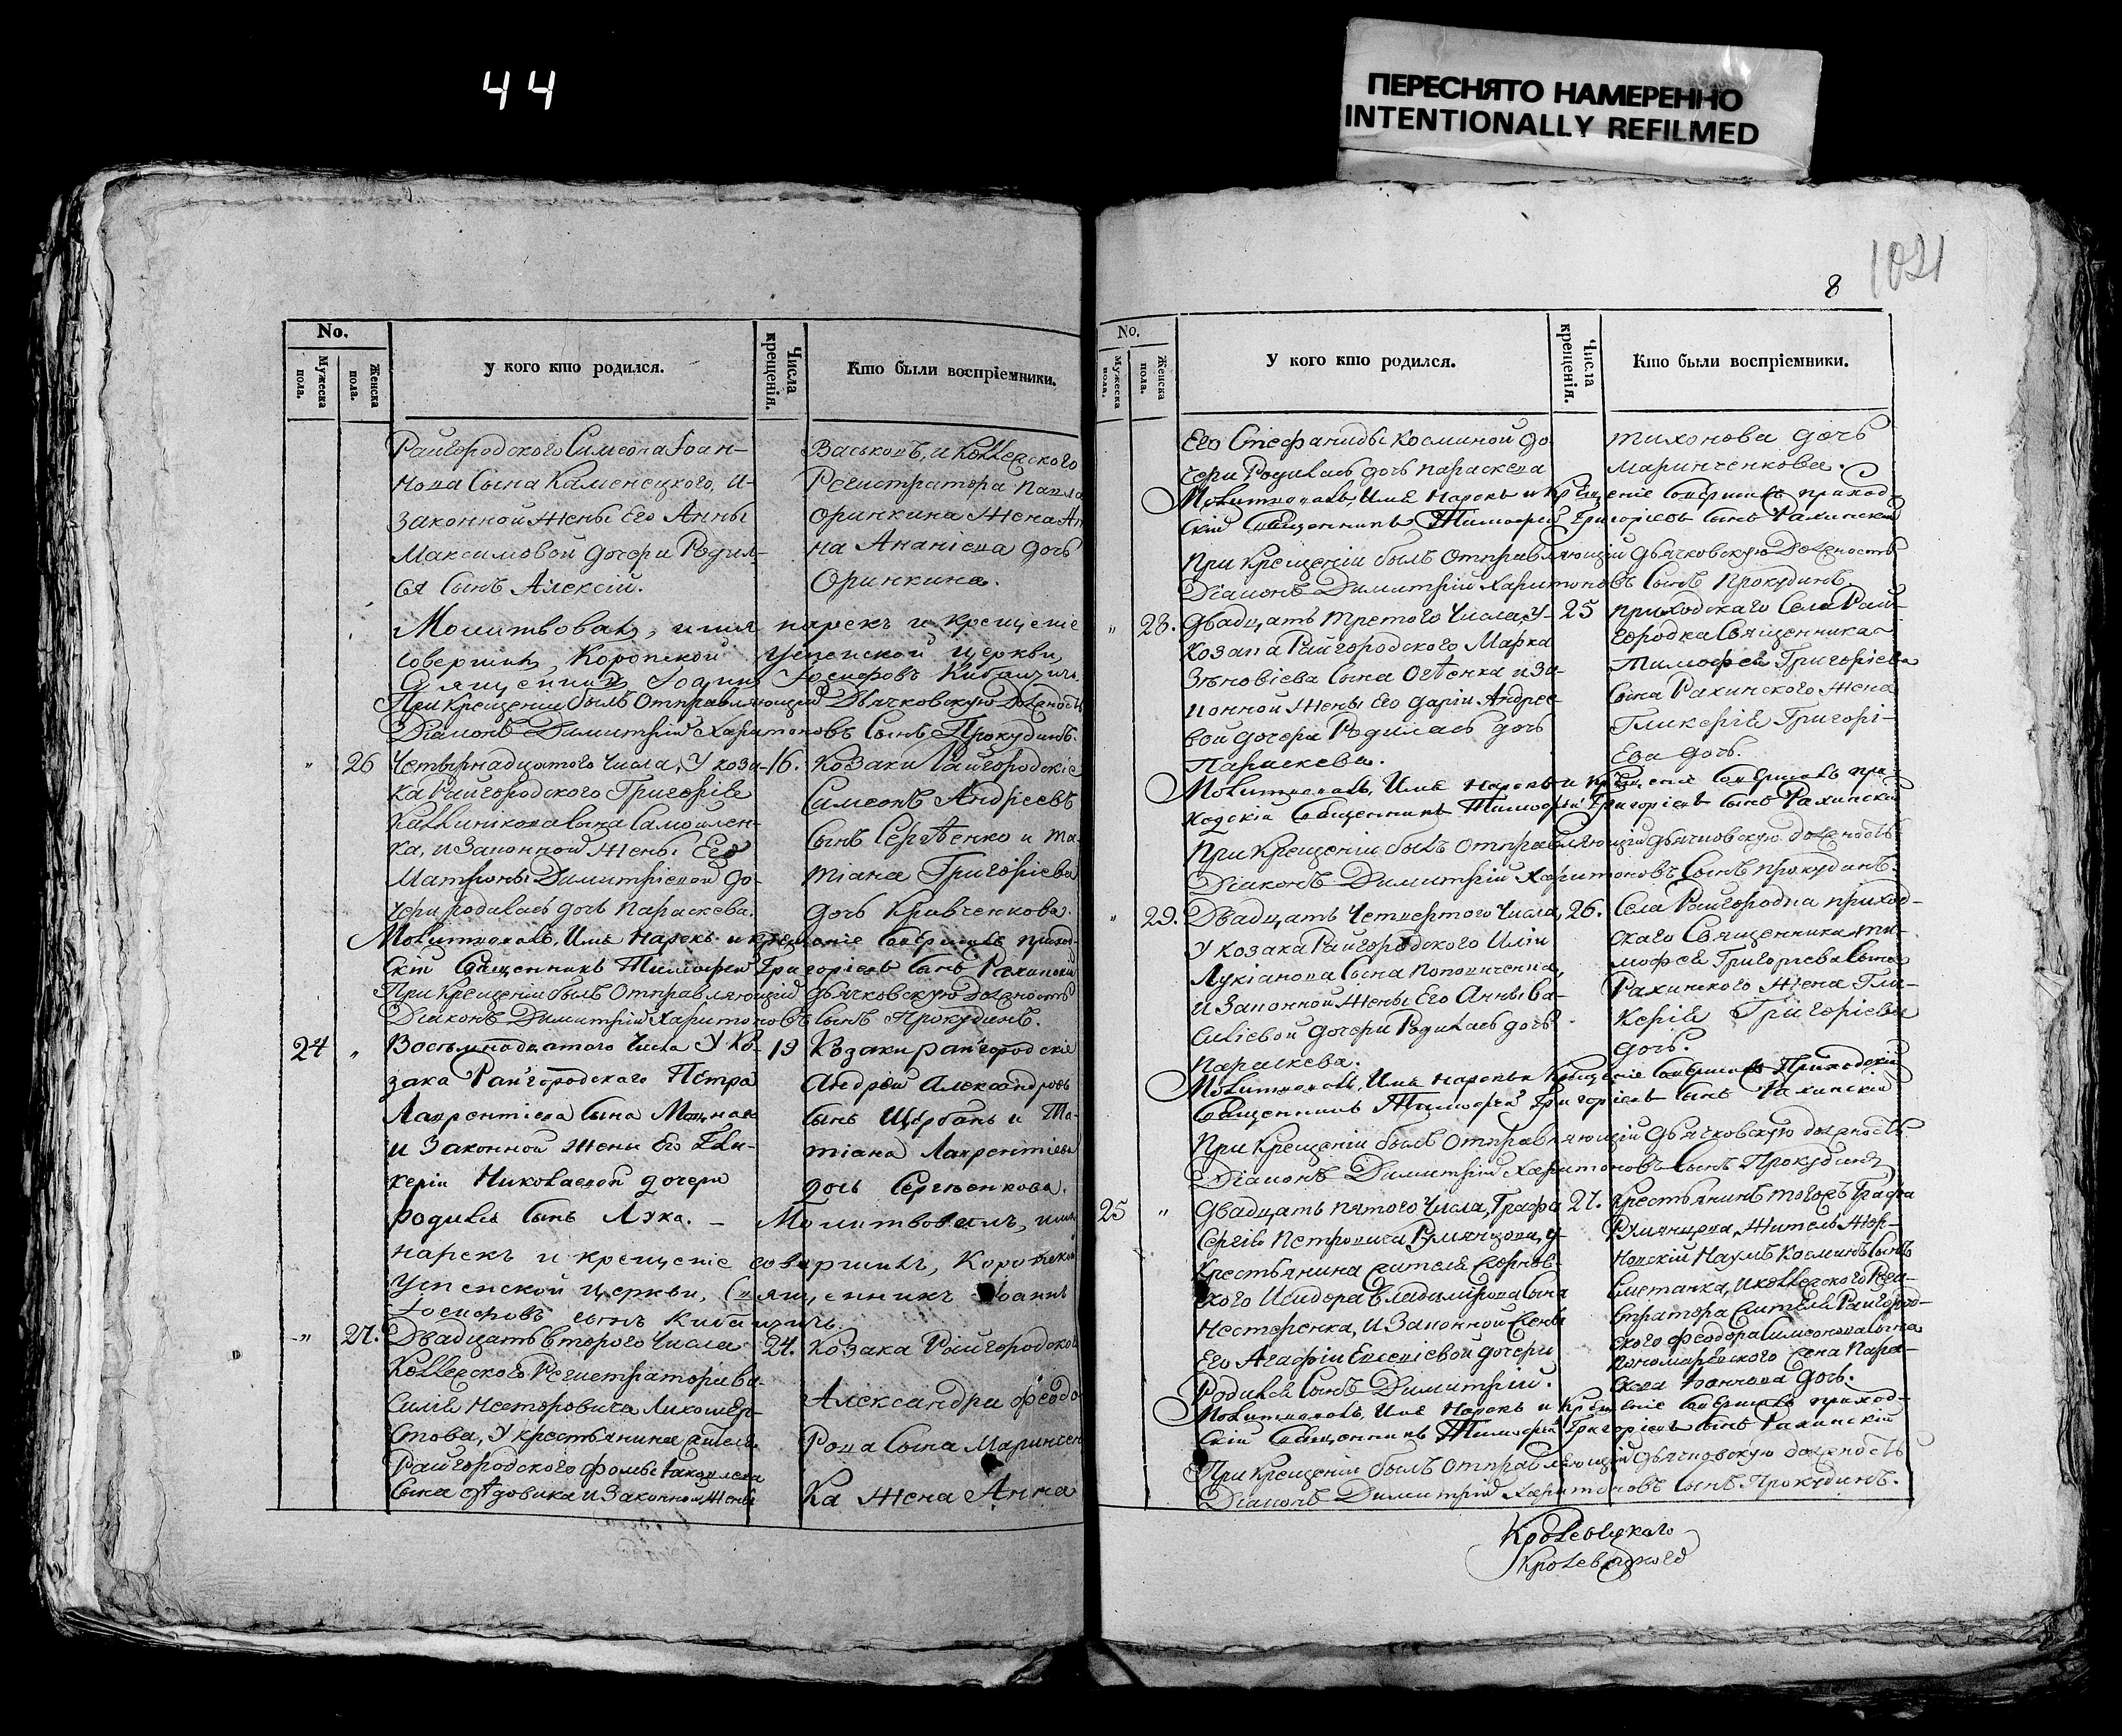 44
ПЕРЕСНЯТО НАМЕРЕННО
INTENTIONALLY REFILMED
1021
8
No.
Мужеска пола.
Женска пола.
У кого кто родился.
Числа крещенія.
Кто были воспріемники.
Райгородского Симеона Іоан-
нова Сына Каменецкого, и
законной жены Его Анны
Максимовой дочери Родил-
ся Сынъ Алексій.
Васьковъ, и Коллежского
Регистратора Павла
Оринкина жена Ан
на Ананіева дочь
Оринкина.
Молитвовалъ, имя нарекъ и крещеніе
совершилъ, Коропской Успенской церкви,
Священникъ Іоаннъ Іосифовъ
При Крещеніи былъ Отправляющій Дьячковскую должность
Діаконъ Димитрій Харитоновъ Сынъ Прокудинъ.
" 26 Четырнадцатого Числа, У коза- 16.
ка Райгородского Григорія
Каллиникова Сына Самойлен-
ка, и Законной жены Его
Матроны Димитріевой до-
чери родилась дочь Параскева.
Козаки Райгородскіе
Симеонъ Андріевъ
Сынъ Сергѣенко и Та-
тіана Григоріева
дочь Кравченкова.
Молитвовалъ, Имя Нарекъ и крещеніе Совершилъ приход-
скій Священникъ Тимофей Григоріевъ Сынъ Рахинскій
При Крещеніи былъ Отправляющій Дьячковскую должность
Діаконъ Димитрій Харитоновъ Сынъ Прокудинъ.
24 " Восемнадцатого Числа У Ко- 19
зака Райгородского Петра
Лаврентіева Сына
и Законной жены Его Гли-
керіи Николаевой дочери
родился Сынъ Лука.
Козаки райгородскіе
Андрей Александровъ
Сынъ Щербакъ и Та-
тіана Лаврентіева
дочь Сергѣенкова.
Молитвовалъ, имя
нарекъ и крещеніе совершилъ, Коропской
Успенской церкви, Священникъ Іоаннъ
Іосифовъ сынъ
" 27. Двадцать второго Числа 24.
Коллежского Регистратора Ва-
силія Несторовича
стова, У крестьянина жителя
Райгородского Фомы Іаковлева
Сына и Законной жены
Козака Райгородского
Александра Феодо
рова Сына Маринчен
ка жена Анна
No.
Мужеска пола.
Женска пола.
У кого кто родился.
Числа крещенія.
Кто были воспріемники.
Его Стефаниды Косминой до-
чери Родилась дочь Параскева
Тихонова дочь
Маринченкова.
Молитвовалъ, Имя Нарекъ и Крещеніе Совершилъ приход-
скій Священникъ Тимофей Григоріевъ Сынъ Рахинскій
При Крещеніи былъ Отправляющій Дьячковскую должность
Діаконъ Димитрій Харитоновъ Сынъ Прокудинъ.
" 28. Двадцать третого Числа, У 25
Козака Райгородского Марка
Зѣновіева Сына и За-
конной жены Его Даріи Андрее-
вой дочери Родилась дочь
Параскева.
приходского Села Рай-
городка Священника
Тимофея Григоріева
Сына Рахинского жена
Гликерія Григорі-
ева дочь.
Молитвовалъ, Имя Нарекъ и Крещеніе Совершилъ при-
ходскій Священникъ Тимофей Григоріевъ Сынъ Рахинскій
При Крещеніи былъ Отправляющій дьячковскую должность
Діаконъ Димитрій Харитоновъ Сынъ Прокудинъ.
" 29. Двадцать Четвертого Числа, 26.
У козака Райгородского Иліи
Лукіанова Сына Поповиченка,
и Законной жены Его Анны Ва-
силіевой дочери Родилась дочь
Параскева.
Села Райгородка приход-
скаго Священника Ти-
мофея Григорьева Сына
Рахинского жена Гли-
керія Григоріева
дочь.
Молитвовалъ, Имя Нарекъ и Крещеніе Совершилъ Приходскій
Священникъ Тимофей Григоріевъ Сынъ Рахинскій
При Крещеніи былъ Отправляющій Дьячковскую должность
Діаконъ Димитрій Харитоновъ Сынъ Прокудинъ
25 " Двадцать пятого Числа, Графа 27.
Сергія Петровича Румянцова, у
Крестьянина жителя
ского Исидора Владимірова Сына
Нестеренка, и Законной жены
Его Агафіи Евсевіевой дочери
Родился Сынъ Димитрій.
Крестьянинъ тогожъ Графа
Румянцова, житель
Наумъ Косминъ Сынъ
Сметанка, и коллежского Реги-
стратора жителя Райгород-
ского Феодора Симеонова Сына
Пономаревского жена Пара-
скева дочь.
Молитвовалъ, Имя Нарекъ и Крещеніе Совершилъ приход-
скій Священникъ Тимофей Григоріевъ Сынъ Рахинскій
При Крещеніи былъ Отправляющій Дьячковскую должность
Діаконъ Димитрій Харитоновъ Сынъ Прокудинъ.
Кролевецкого
Кролевецкого